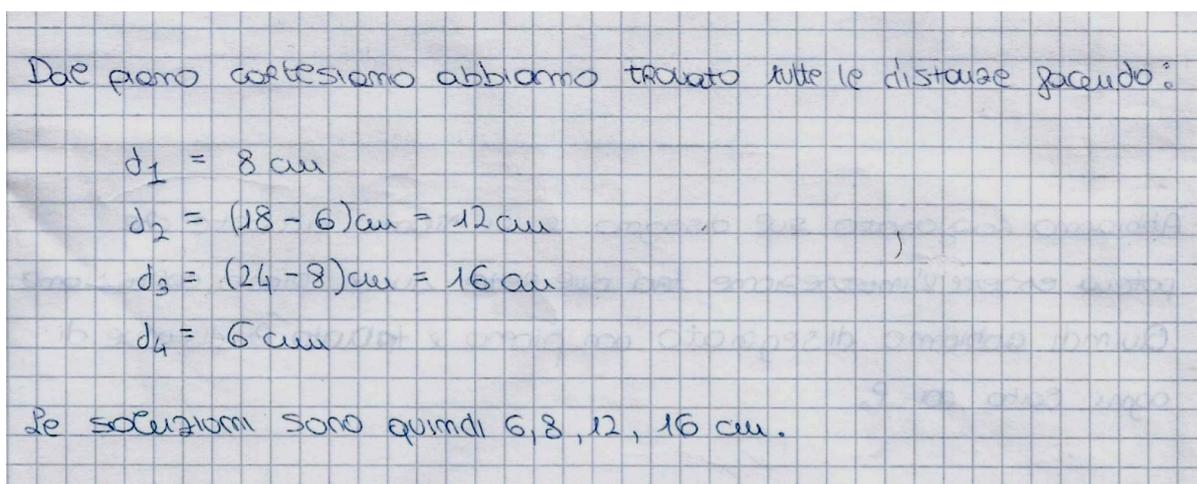 Dal piano cartesiano abbiamo trovato tutte le distanze facendo:
d1 = 8 cm
d2 = (18 - 6) cm = 12 cm
d3 = (24 - 8) cm = 16 cm
d4 = 6 cm
Le soluzioni sono quindi 6, 8, 12, 16 cm.